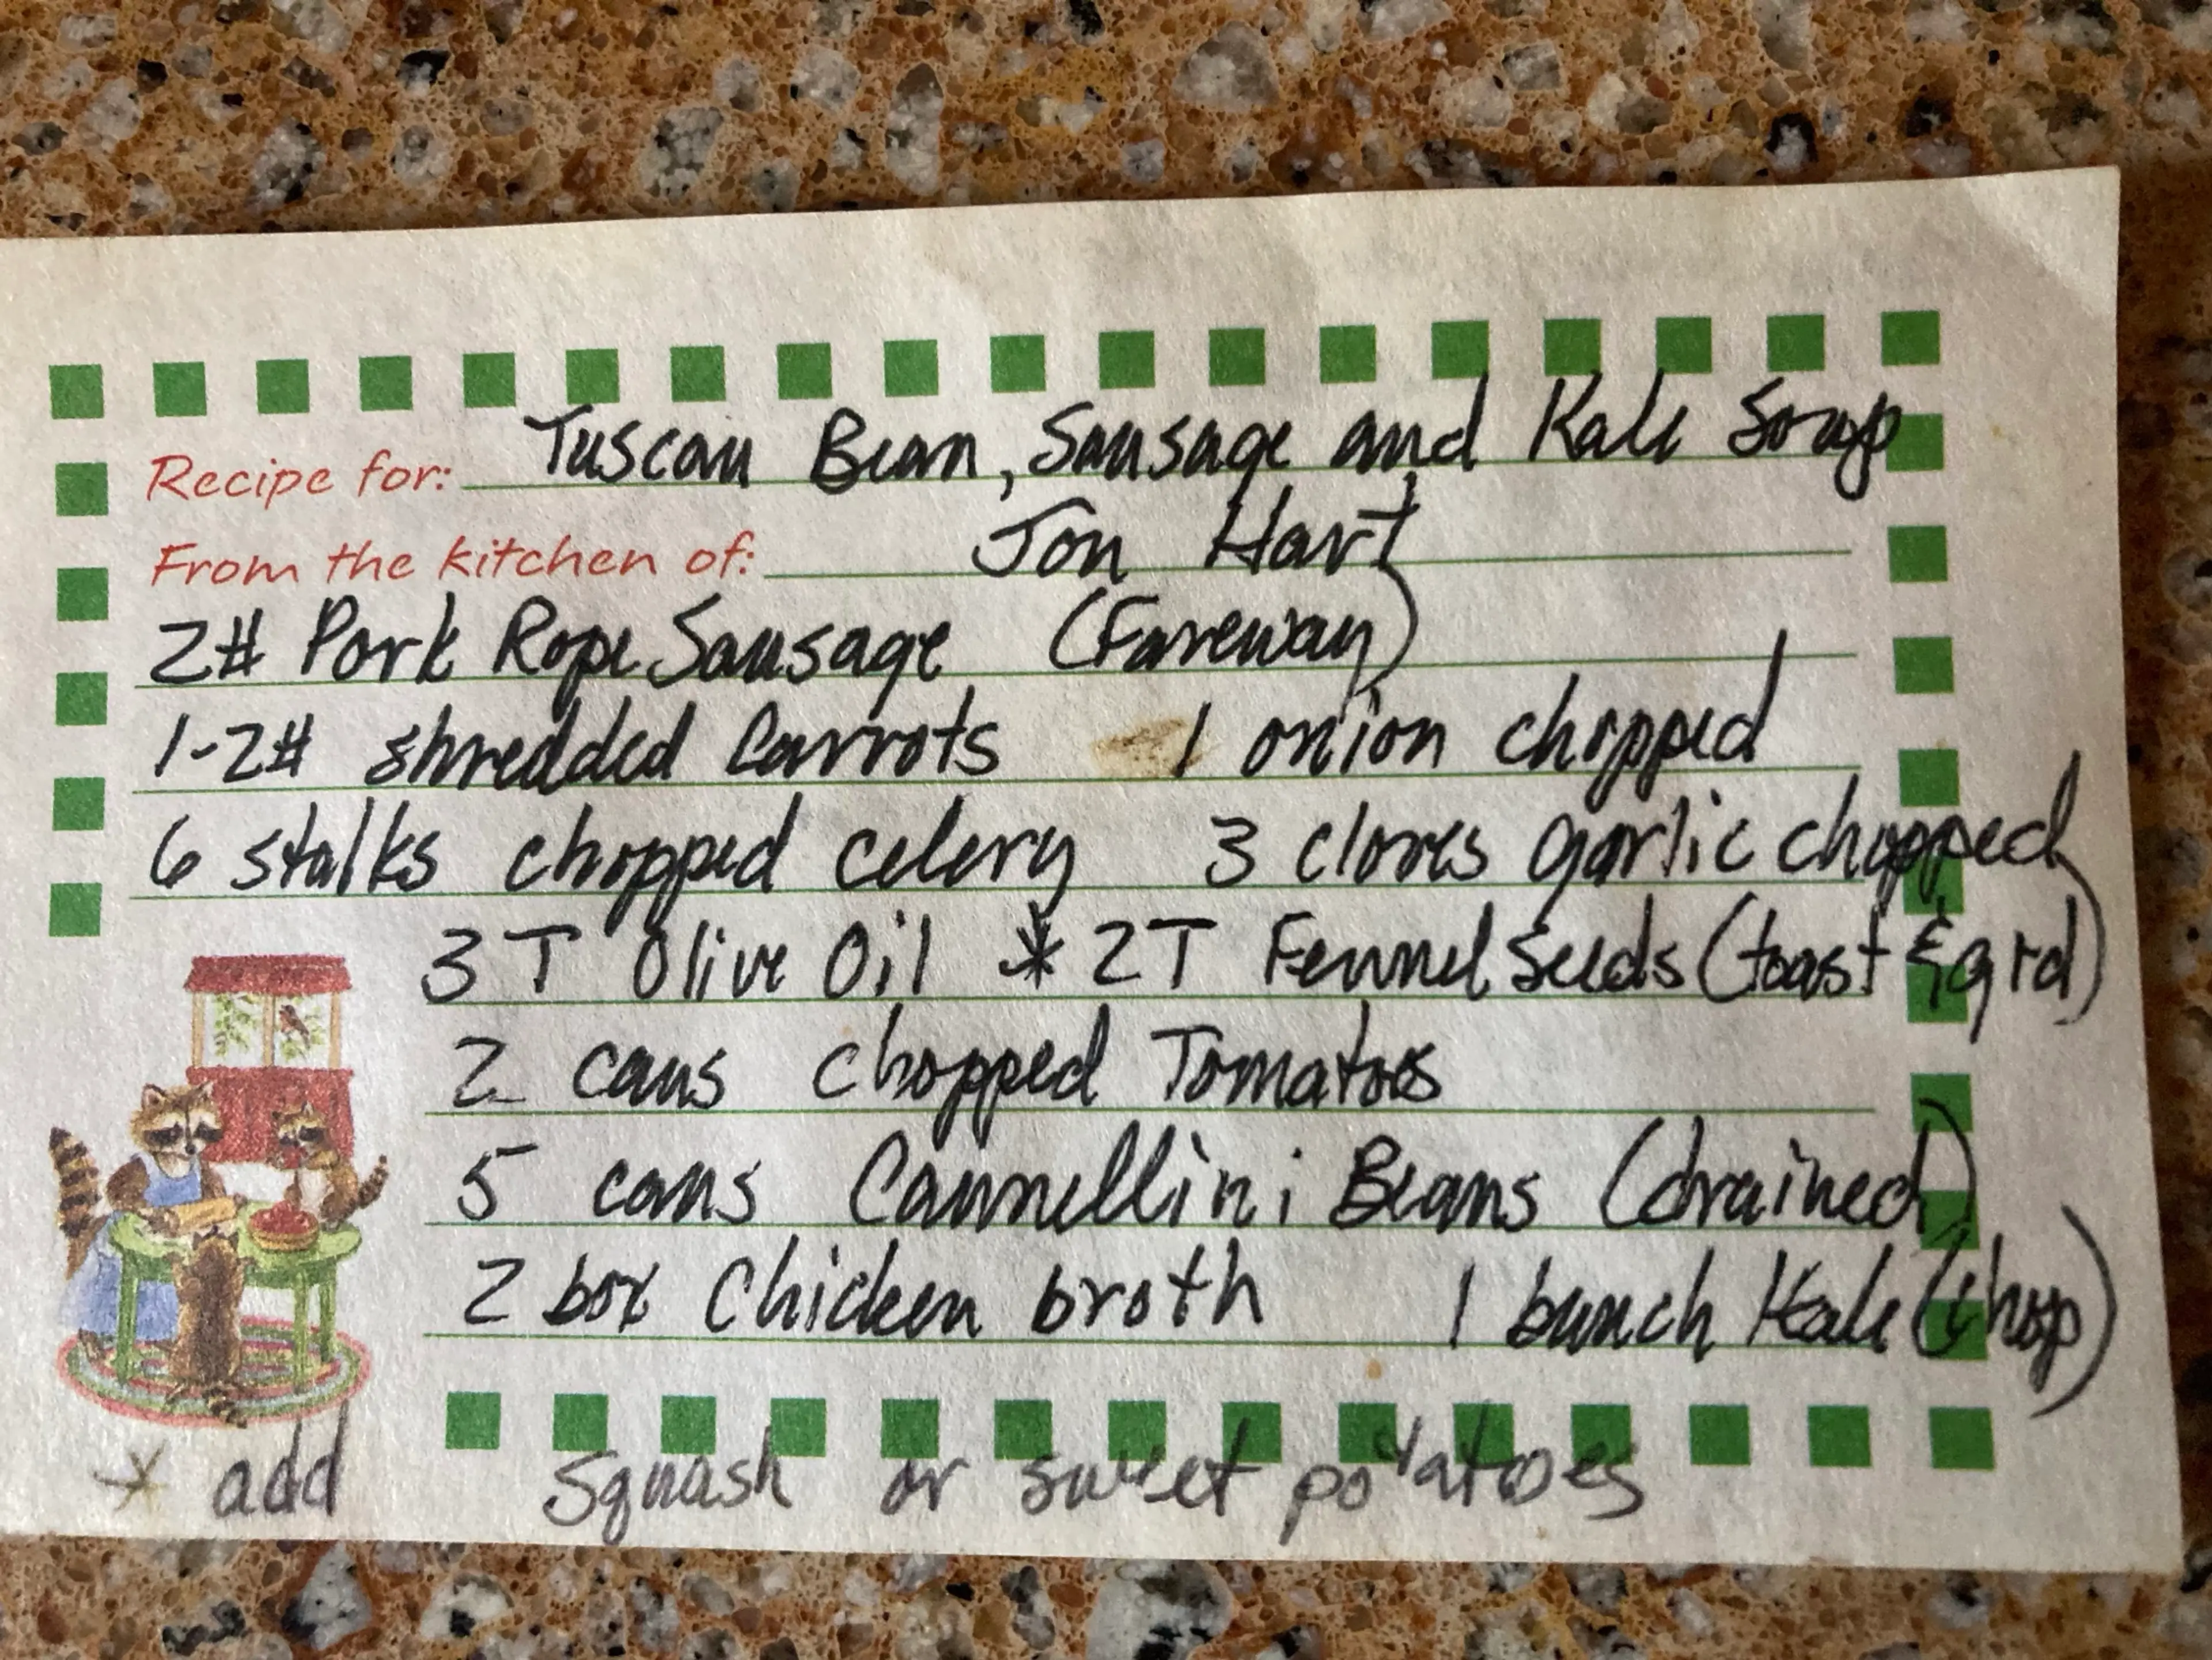 Recipe for: Tuscan Bean, Sausage and Kale Soup
From the kitchen of: Jon Hart
2# Pork Rope Sausage (Fareway)
1-2# shredded Carrots 1 onion chopped
6 stalks chopped celery 3 cloves garlic chopped
3 T Olive Oil * 2T Fennel Seeds (toast & grd)
2 cans chopped Tomatoes
5 cans Cannellini Beans (drained)
2 box Chicken broth 1 bunch Kale (chop)
* add Squash or sweet potatoes